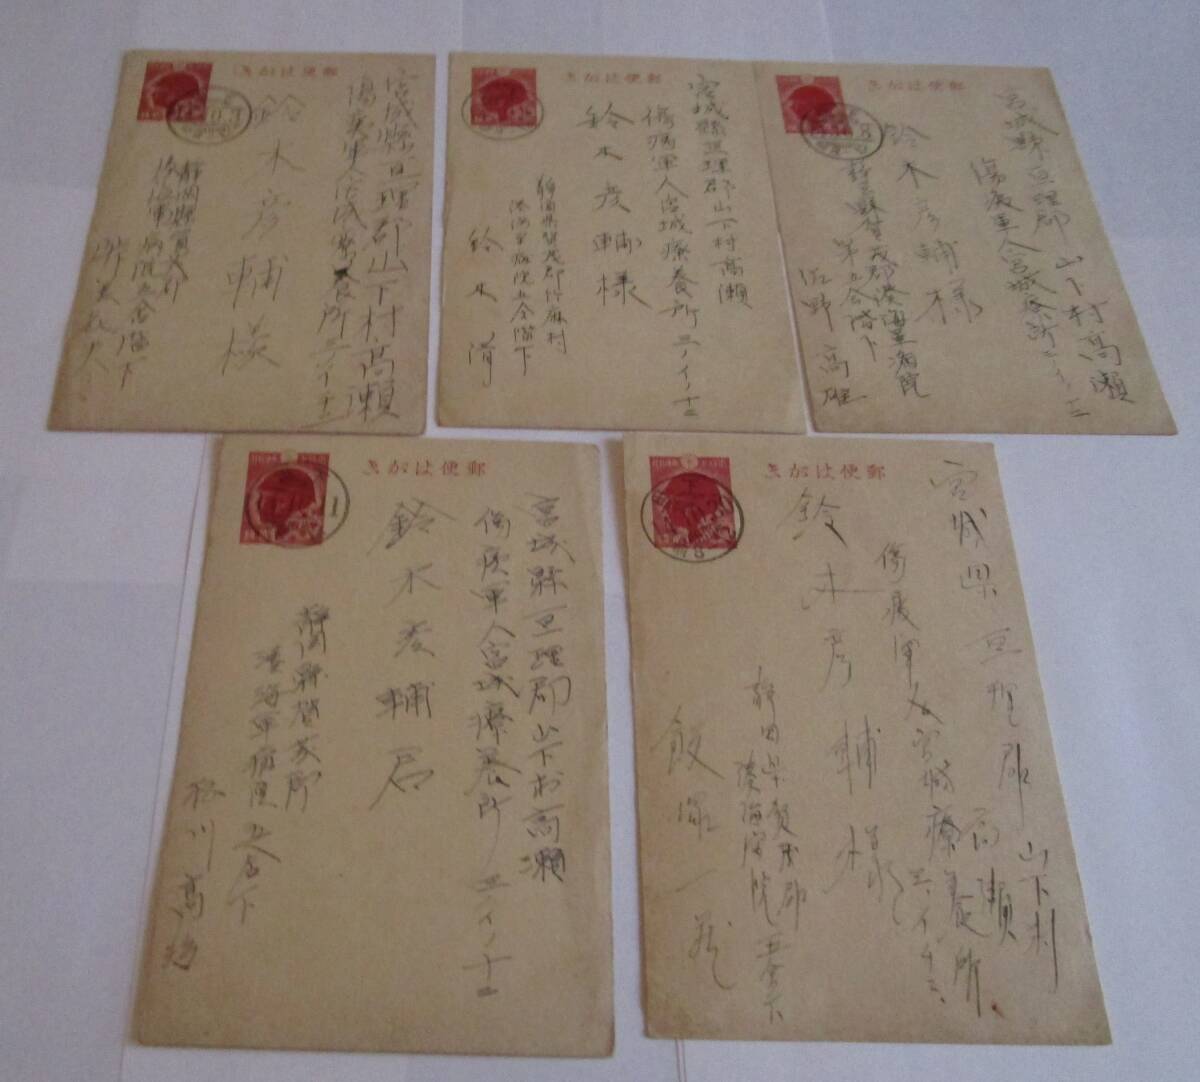 郵便はがき
宮城縣亘理郡山下村高瀬
傷痍軍人宮城療養所三ノイノ十二
鈴木彦輔様
静岡縣賀茂郡
湊海軍病院五舎階下
郵便はがき
宮城縣亘理郡山下村高瀬
傷痍軍人宮城療養所三ノイノ十二
鈴木彦輔様
静岡縣賀茂郡竹麻村
湊海軍病院五舎階下
鈴木清
郵便はがき
宮城縣亘理郡山下村高瀬
傷痍軍人宮城療所三ノイノ十二
鈴木彦輔様
静岡縣賀茂郡湊海軍病院
第五舎階下
佐野高雄
郵便はがき
宮城縣亘理郡山下村高瀬
傷痍軍人宮城療養所三ノイノ十二
鈴木彦輔君
静岡縣賀茂郡
湊海軍病院五舎下
川高
郵便はがき
宮城県亘理郡山下村
高瀬
傷痍軍人宮城療養所三ノイノ十二
鈴木彦輔様
静岡県賀茂郡
湊海軍病院五舎下
飯塚一